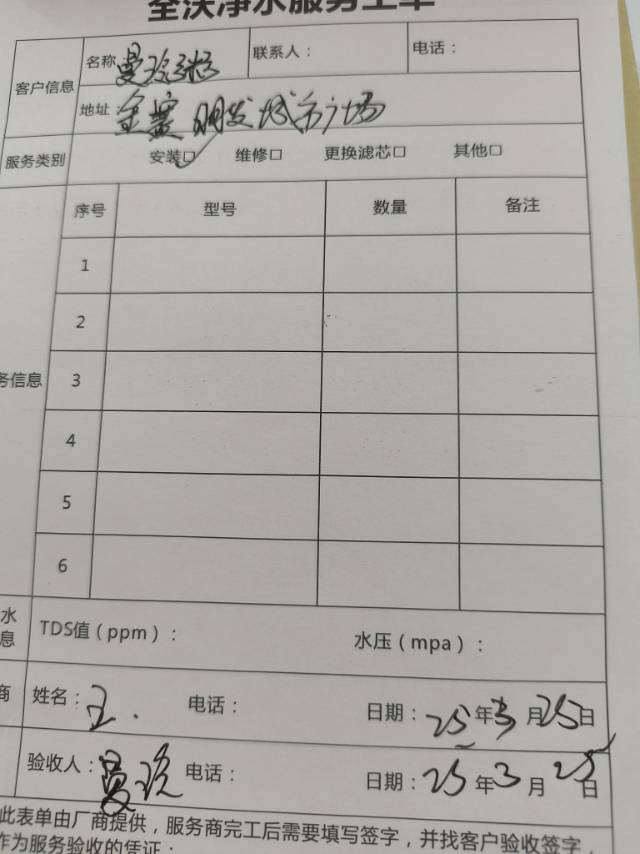 全沃净水服务工单
客户信息 名称 曼玲粥 联系人： 电话：
地址 金鹰 明发城市广场
服务类别 安装☑ 维修□ 更换滤芯□ 其他□
序号 型号 数量 备注
1
2
务信息 3
4
5
6
水息 TDS值（ppm）： 水压（mpa）：
商 姓名：王. 电话： 日期：25年3月25日
验收人： 电话： 日期：25年3月25日
此表单由厂商提供，服务商完工后需要填写签字，并找客户验收签字，
作为服务验收的凭证；